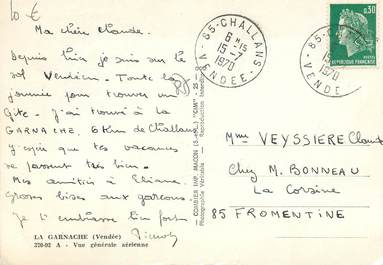 10 €
Ma chère Claude.
Depuis hier je suis sur le
sol Vendéen. Toute la
journée pour trouver un
gîte. J'ai trouvé à la
GARNACHE, 6 Km de Challans
J'espère que tes vacances
se passent très bien.
Mes amitiés à Eliane.
Grosses bises aux garçons.
Je t'embrasse bien fort
LA GARNACHE (Vendée)
220-92 A - Vue générale aérienne
COMBIER IMP. MACON (S.-&-L.) "CIM"
Photographie Véritable - Reproduction Interdite
85-CHALLANS
6 H 15
15-7
1970
VENDEE
85-CHALLANS
1970
VENDEE
0,30
REPUBLIQUE FRANCAISE
Mme VEYSSIERE Claude
Chez M. BONNEAU
La Corsine
85 FROMENTINE